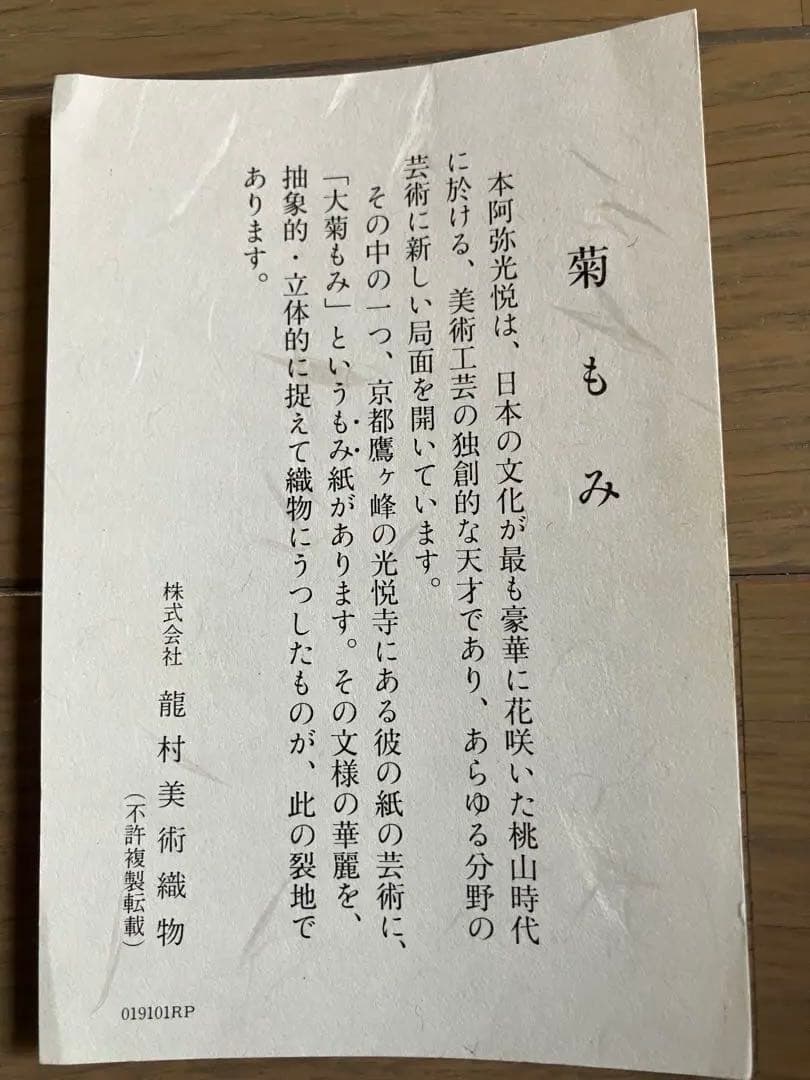 菊もみ
本阿弥光悦は、日本の文化が最も豪華に花咲いた桃山時代
に於ける、美術工芸の独創的な天才であり、あらゆる分野の
芸術に新しい局面を開いています。
その中の一つ、京都鷹ヶ峰の光悦寺にある彼の紙の芸術に、
「大菊もみ」というもみ紙があります。その文様の華麗を、
抽象的・立体的に捉えて織物にうつしたものが、此の裂地で
あります。
株式会社 龍村美術織物
(不許複製転載)
019101RP